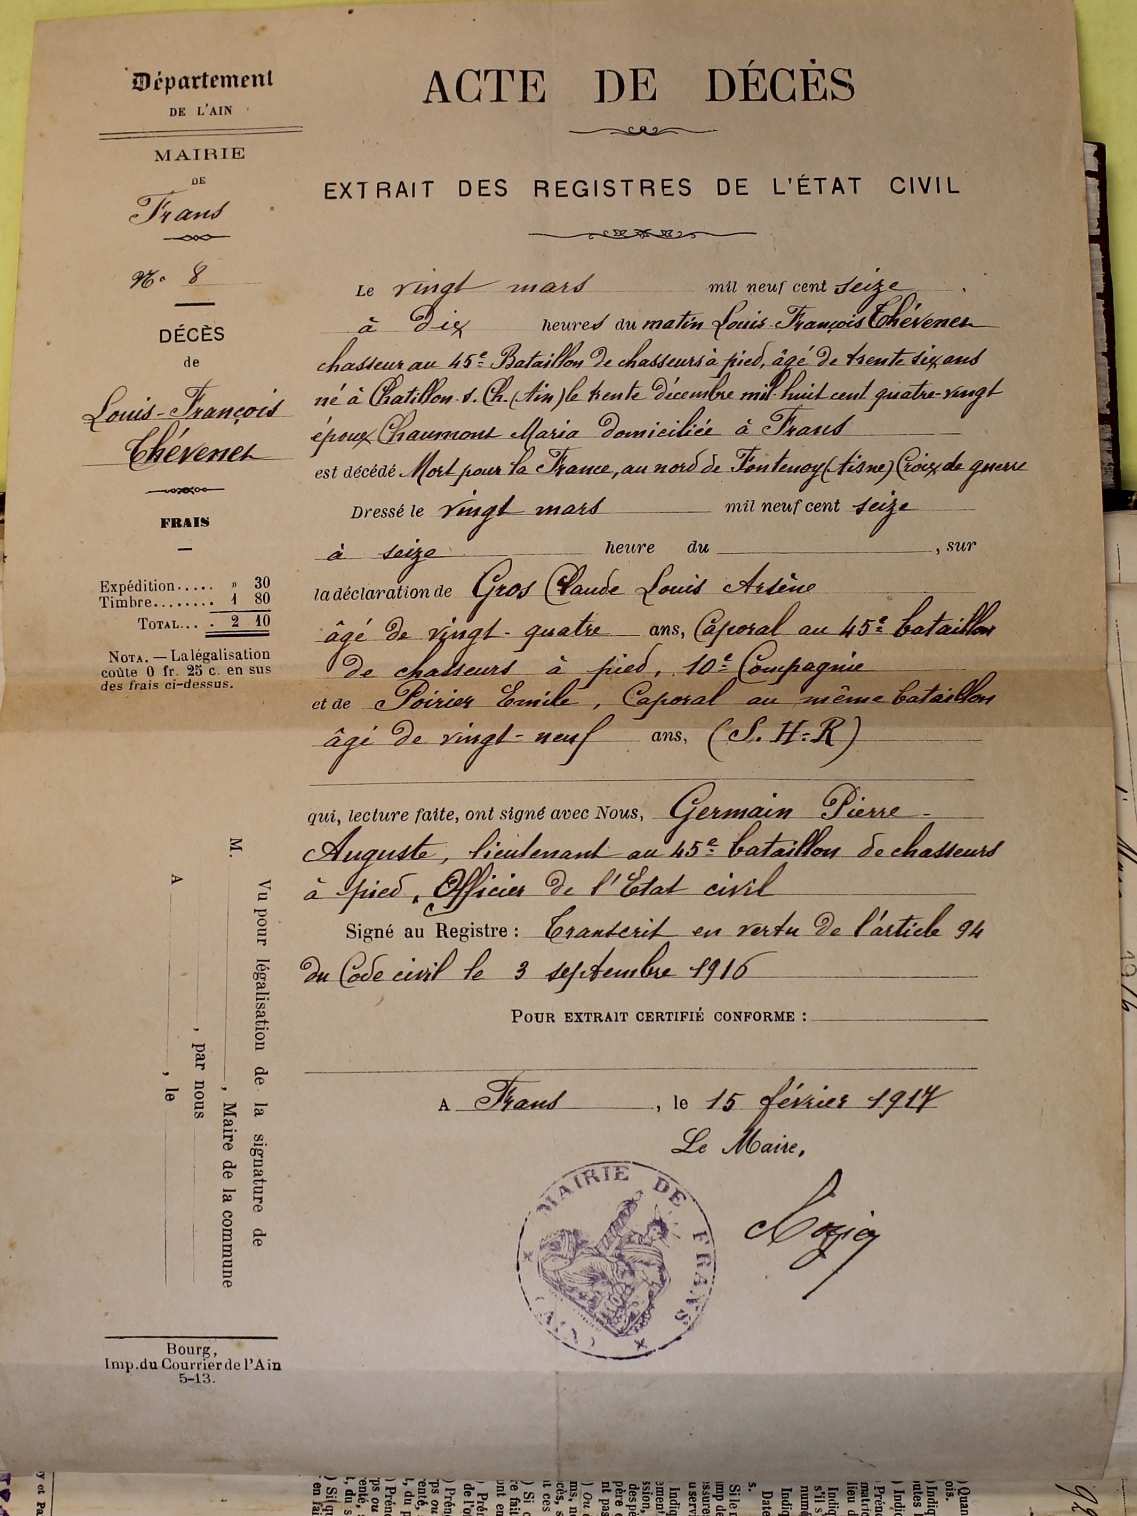 Département
DE L'AIN
MAIRIE
DE
Frans
N° 8
DÉCÈS
de
Louis-François
Thévenet
FRAIS
Expédition..... » 30
Timbre........ 1 80
TOTAL... . 2 10
NOTA. — La légalisation
coûte 0 fr. 25 c. en sus
des frais ci-dessus.
Vu pour légalisation de la signature de
M. , Maire de la commune
, par nous
A , le
Bourg,
Imp. du Courrier de l'Ain
5-13.
ACTE DE DÉCÈS
EXTRAIT DES REGISTRES DE L'ÉTAT CIVIL
Le vingt mars mil neuf cent seize
à dix heures du matin Louis François Thévenet
chasseur au 45e Bataillon de chasseurs à pied, âgé de trente six ans
né à Chatillon s. Ch. (Ain) le trente décembre mil huit cent quatre-vingt
époux Chaumont Maria domiciliée à Frans
est décédé Mort pour la France, au nord de Fontenoy (Aisne) Croix de guerre
Dressé le vingt mars mil neuf cent seize
à seize heure du , sur
la déclaration de Gros Claude Louis Arsène
âgé de vingt-quatre ans, Caporal au 45e bataillon
de chasseurs à pied, 10e Compagnie
et de Poirier Emile, Caporal au même bataillon
âgé de vingt-neuf ans, (S. H-R)
qui, lecture faite, ont signé avec Nous, Germain Pierre-
Auguste, lieutenant au 45e bataillon de chasseurs
à pied, Officier de l'Etat civil
Signé au Registre : Transcrit en vertu de l'article 94
du Code civil le 3 septembre 1916
POUR EXTRAIT CERTIFIÉ CONFORME :
A Frans , le 15 février 1917
Le Maire,
MAIRIE DE FRANS